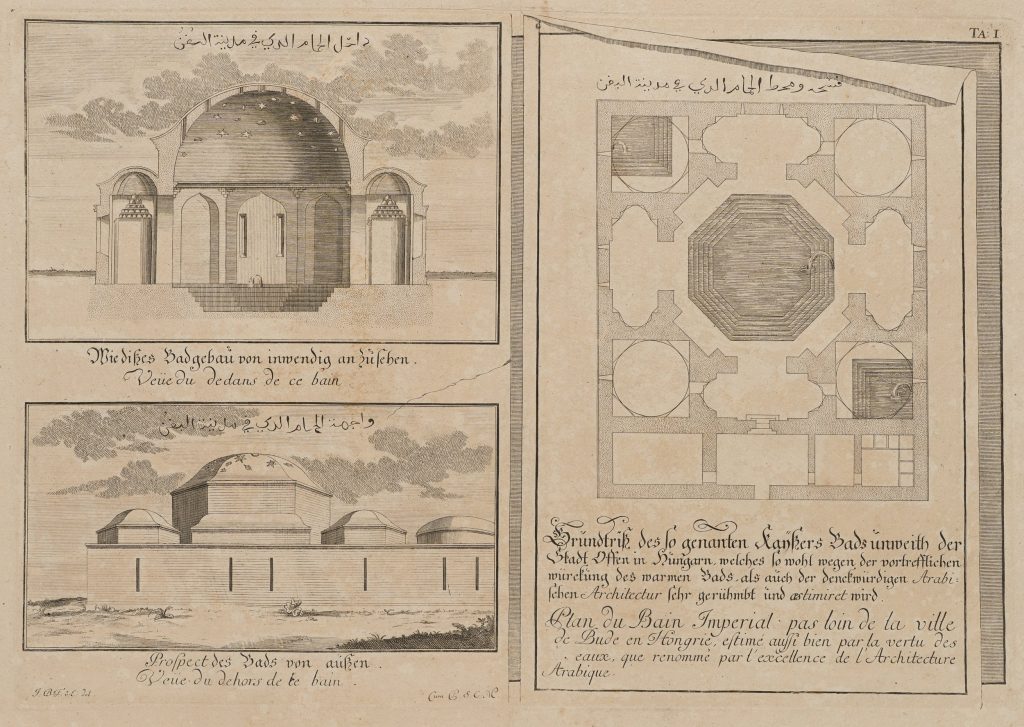 داخل الحمام الدي في مدينة البفن
Wie dißes Badgebäu von inwendig an Zusehen.
Veüe du dedans de ce bain
واجهة الحمام الدي في مدينة البفن
Prospect des Bads von außen.
Veüe du dehors de te bain.
Cum P. S. C. M.
TA: I.
الحمام الدي في مدينة البفن
Gründtriß des so genanten Kaÿßers Bads ünweith der
Stadt Offen in Hüngarn, welches so wohl wegen der vortrefflichen
würckung des warmen Bads, als auch der denckwürdigen Arabi-
schen Architectur sehr gerühmbt und æstimiret wird
Plan du Bain Imperial pas loin de la ville
de Bude en Hongrie, estimé aussi bien par la vertu des
eaux, que renommé par l'excellence de l'Architecture
Arabique.